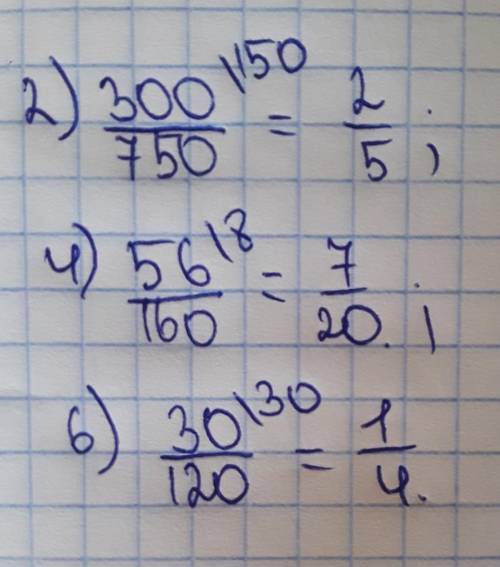 2) 300/750 \150 = 2/5 ;
4) 56/160 \8 = 7/20. ;
6) 30/120 \30 = 1/4.